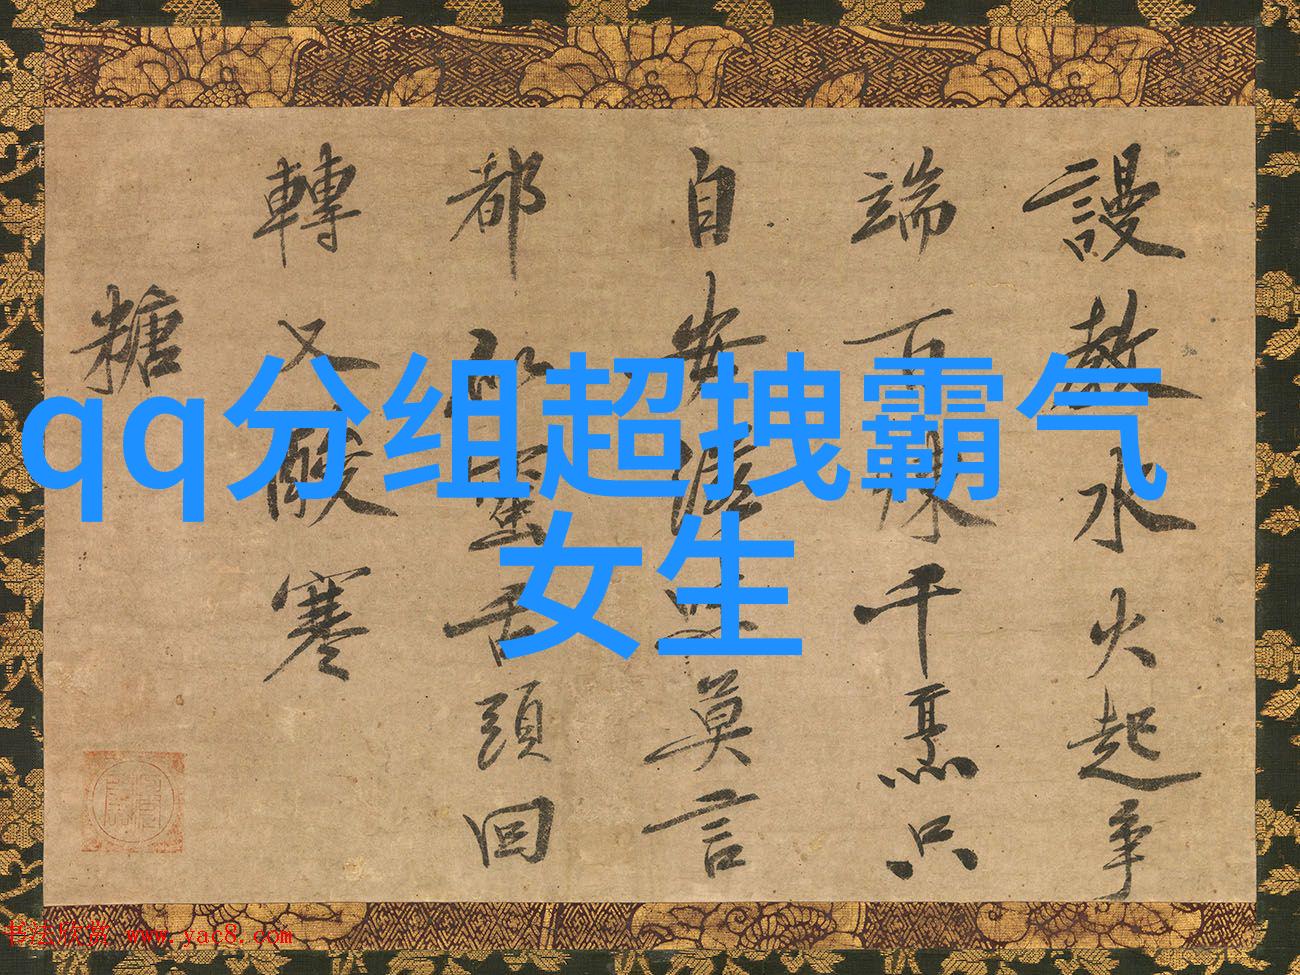 qq分组超拽霸气
女生
謾教水火起爭
端百煉千烹只
自安滋味莫言
都似蜜舌頭回
轉又酸寒
糖
书法欣赏 www.yac8.com